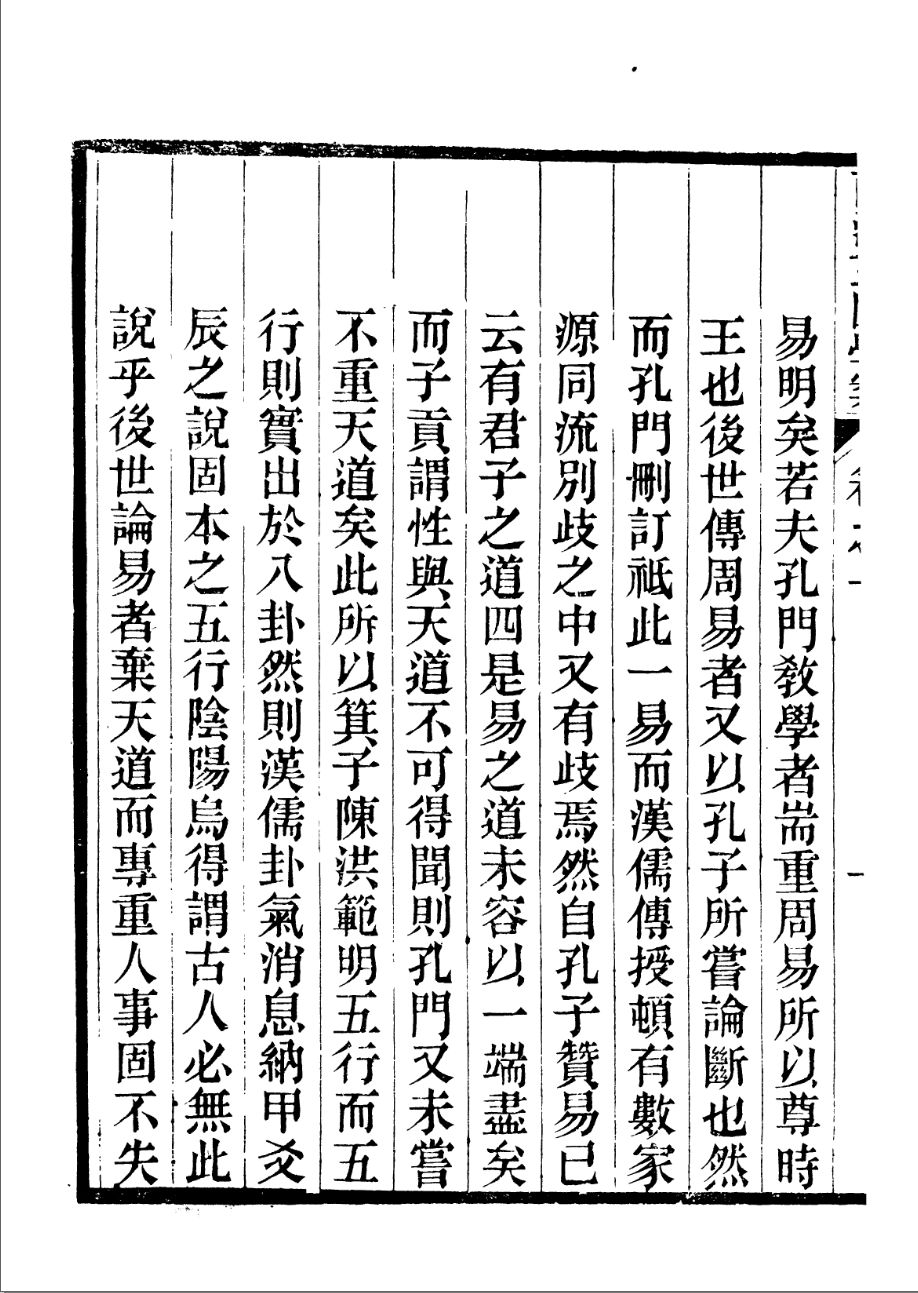 易明矣若夫孔門敎學者耑重周易所以尊時
王也後世傳周易者又以孔子所嘗論斷也然
而孔門刪訂祗此一易而漢儒傳授頓有數家
源同流別歧之中又有歧焉然自孔子贊易已
云有君子之道四是易之道未容以一端盡矣
而子貢謂性與天道不可得聞則孔門又未嘗
不重天道矣此所以箕子陳洪範明五行而五
行則實出於八卦然則漢儒卦氣消息納甲爻
辰之說固本之五行陰陽烏得謂古人必無此
說乎後世論易者棄天道而專重人事固不失